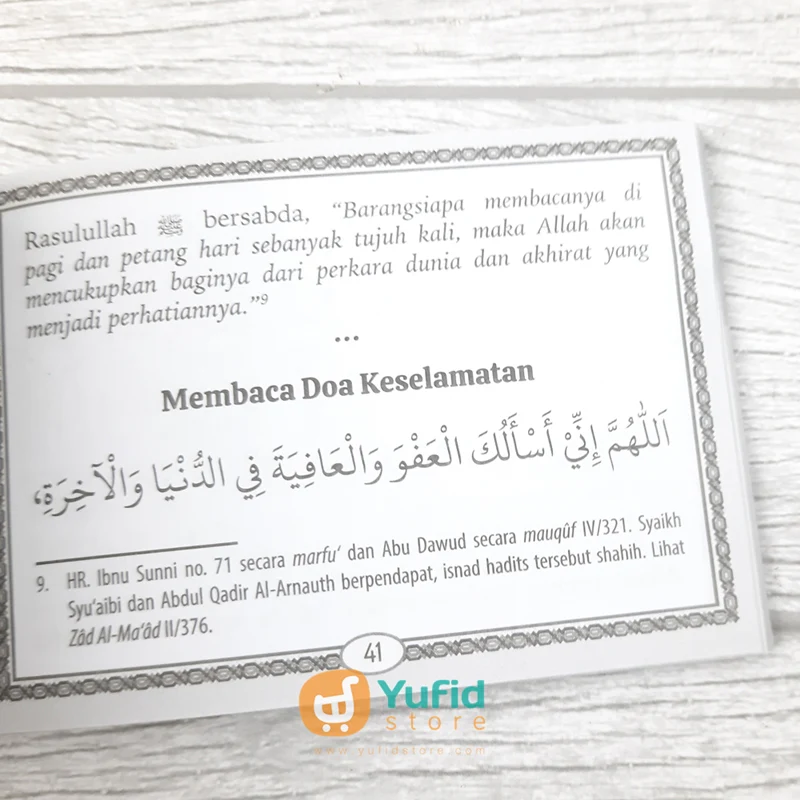 Rasulullah ﷺ bersabda, “Barangsiapa membacanya di
pagi dan petang hari sebanyak tujuh kali, maka Allah akan
mencukupkan baginya dari perkara dunia dan akhirat yang
menjadi perhatiannya.”⁹
...
Membaca Doa Keselamatan
اَللّٰهُمَّ إِنِّيْ أَسْأَلُكَ الْعَفْوَ وَالْعَافِيَةَ فِي الدُّنْيَا وَالْآخِرَةِ،
9. HR. Ibnu Sunni no. 71 secara marfu‘ dan Abu Dawud secara mauqûf IV/321. Syaikh
Syu‘aibi dan Abdul Qadir Al-Arnauth berpendapat, isnad hadits tersebut shahih. Lihat
Zâd Al-Ma‘âd II/376.
41
Yufid
store
www.yufidstore.com